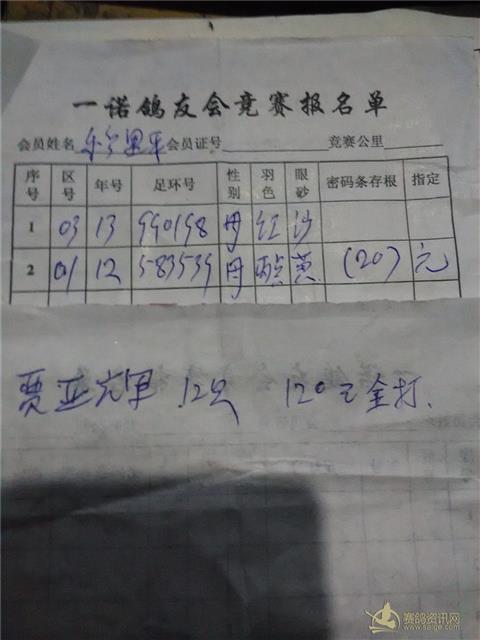 一诺鸽友会竞赛报名单
会员姓名 会员证号 竞赛公里
序号 区号 年号 足环号 性别 羽色 眼砂 密码条存根 指定
1 03 13 990198 红 沙
2 01 12 583539 黄 (20) 元
贾亚军 12只 120元全打.
赛鸽资讯网
www.saige.com